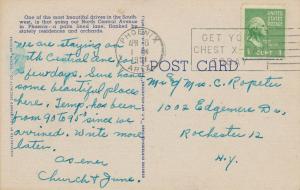 One of the most beautiful drives in the South-
west, is that going out North Central Avenue
in Phoenix—a palm lined lane, flanked by
stately residences and orchards.
PHOENIX
APR 6
1 PM
ARIZ.
GET YO
CHEST X-
1 CENT 1
POST CARD
We are staying on
North Central Ave for
a few days. Sure have
some beautiful places
here. Temp. has been
from 90 to 95° since we
arrived. Write more
later.
As ever
Church & June.
Mr & Mrs. C. Ropeter
1002 Edgemere Dr.
Rochester 12
N.Y.